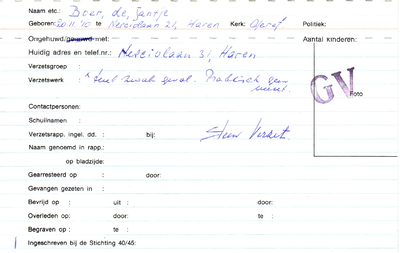 Naam etc.: Boer, de, Jantje
Geboren: 20.11.'10 te Nereidlaan 21, Haren Kerk: Geref. Politiek:
Ongehuwd/gehuwd met: Aantal kinderen:
Huidig adres en telef.nr.: 31, Haren
Verzetsgroep :
Verzetswerk : zwak geval. Praktisch
GV
Foto
Contactpersonen:
Schuilnamen :
Verzetsrapp. ingel. dd. : bij: Steun Verzet.
Naam genoemd in rapp.:
op bladzijde:
Gearresteerd op : door:
Gevangen gezeten in :
Bevrijd op : uit : door:
Overleden op : door: te :
Begraven op : te :
Ingeschreven bij de Stichting 40/45: